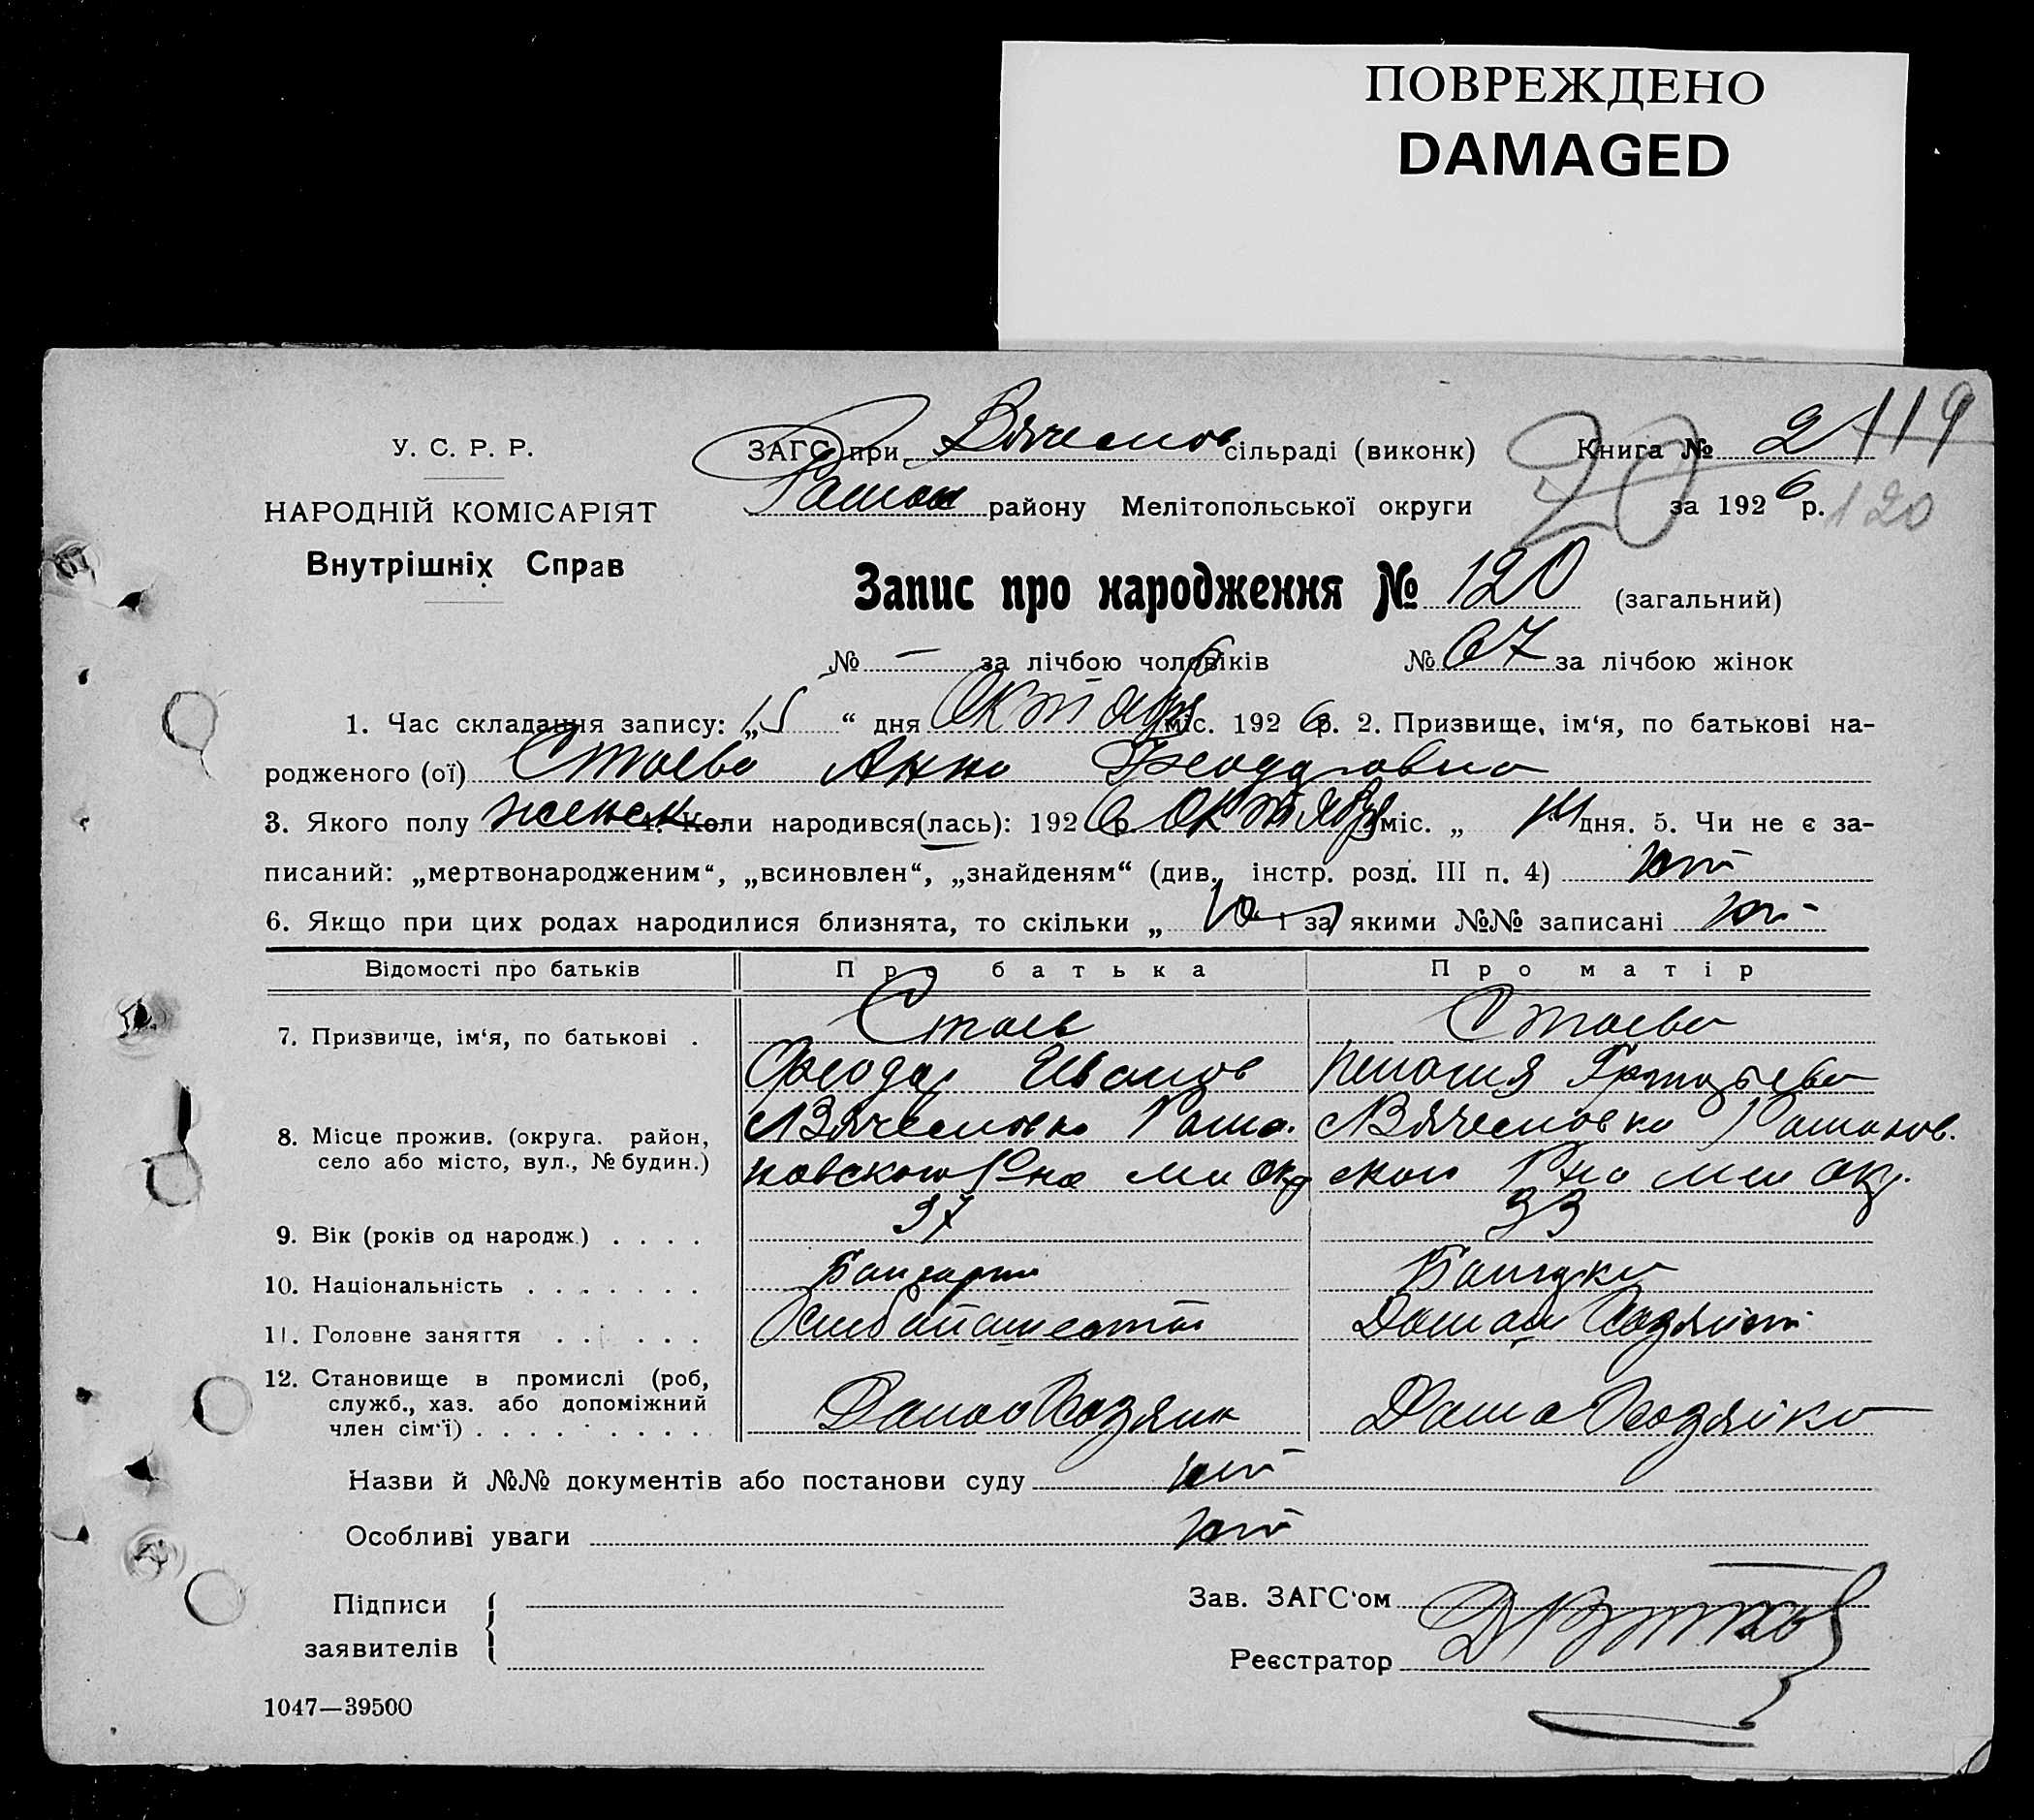 ПОВРЕЖДЕНО
DAMAGED
119
У. С. Р. Р.
ЗАГС при Вячеслов сільраді (виконк) Книга № 2
Роман району Мелітопольської округи за 1926 р.
20
120
НАРОДНІЙ КОМІСАРІЯТ
Внутрішніх Справ
Запис про народження № 120 (загальний)
№ — за лічбою чоловіків № 67 за лічбою жінок
1. Час складання запису: „15“ дня Октября міс. 1926 р. 2. Призвище, ім'я, по батькові на-
родженого (ої) Стоева Анна Феодоровна
3. Якого полу женск 4. Коли народився(лась): 1926 р Октября міс. „ 14 дня. 5. Чи не є за-
писаний: „мертвонародженим“, „всиновлен“, „знайденям“ (див. інстр. розд. III п. 4) нет
6. Якщо при цих родах народилися близнята, то скільки „ і за якими №№ записані нет
Відомості про батьків Про батька Про матір
7. Призвище, ім'я, по батькові . Стоев Стоева
Феодор Иванов Пелагия
8. Місце прожив. (округа. район, село або місто, вул., № будин.) Вячесловка Рома- Вячесловка Романов.
новского Рна Мел Окр ского Рна Мел Окр.
9. Вік (років од народж.) . . . . 37 33
10. Національність . . . . . . . Болгарин Болгарка
11. Головне заняття . . . . . . Хлебопашество Домаш Хозяйст
12. Становище в промислі (роб, служб., хаз. або допоміжний член сім'ї) . . . . . . . . . . Домохозяин Домохозяйка
Назви й №№ документів або постанови суду нет
Особливі уваги нет
Підписи
заявителів
Зав. ЗАГС'ом
Реєстратор
1047—39500